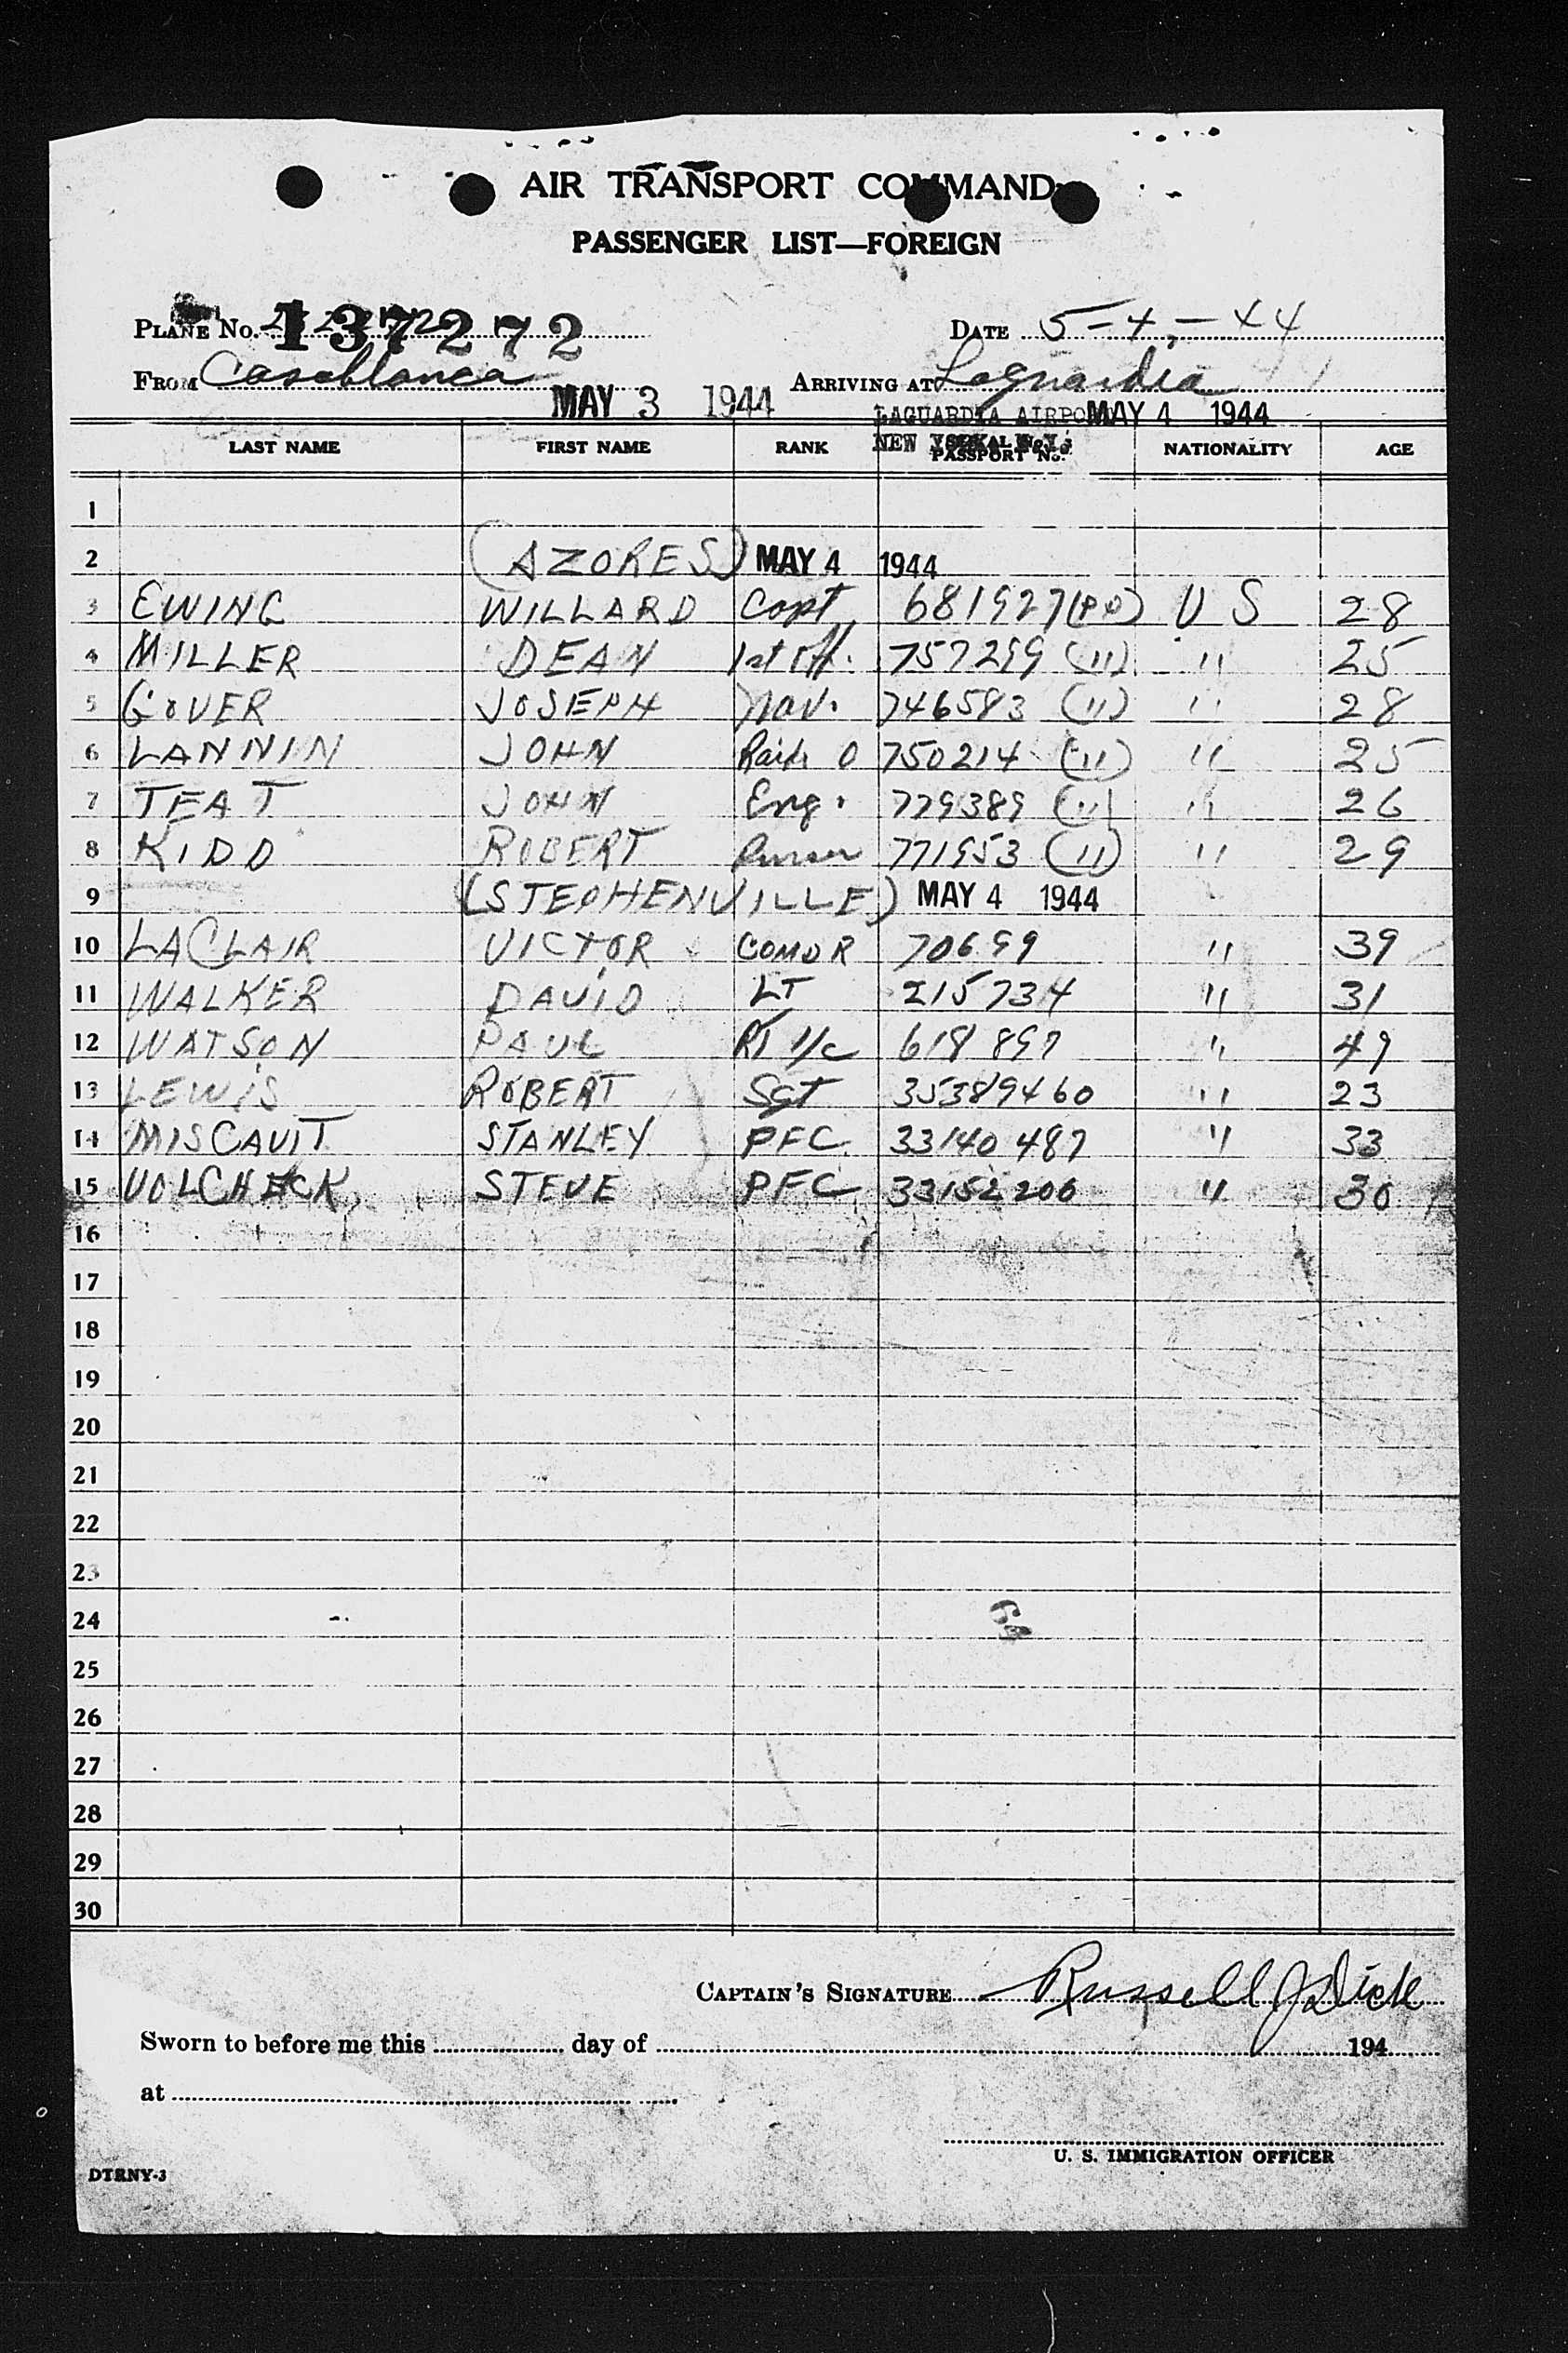 AIR TRANSPORT COMMAND
PASSENGER LIST—FOREIGN
PLANE No. 137272 DATE 5-4-44
FROM Casablanca ARRIVING AT Laguardia
MAY 3 1944 LAGUARDIA AIRPORT MAY 4 1944
LAST NAME FIRST NAME RANK NEW PASSPORT No. NATIONALITY AGE
1
2 (AZORES) MAY 4 1944
3 EWING WILLARD Capt 681927(PP) U S 28
4 MILLER DEAN 1st Off. 757299 (") " 25
5 GOVER JOSEPH Nav. 746583 (") " 28
6 LANNIN JOHN Radio O 750214 (") " 25
7 TEAT JOHN Eng. 779389 (") " 26
8 KIDD ROBERT Purser 771953 (") " 29
9 (STEPHENVILLE) MAY 4 1944
10 LACLAIR VICTOR COMDR 70699 " 39
11 WALKER DAVID LT 215734 " 31
12 WATSON PAUL RT 1/c 618 897 " 49
13 LEWIS ROBERT SGT 35389460 " 23
14 MISCAVIT STANLEY PFC 33140487 " 33
15 VOLCHECK, STEVE PFC 33152206 " 30
16
17
18
19
20
21
22
23
24
25
26
27
28
29
30
CAPTAIN'S SIGNATURE Russell J Dick
Sworn to before me this day of 194
at
U. S. IMMIGRATION OFFICER
DTRNY-3